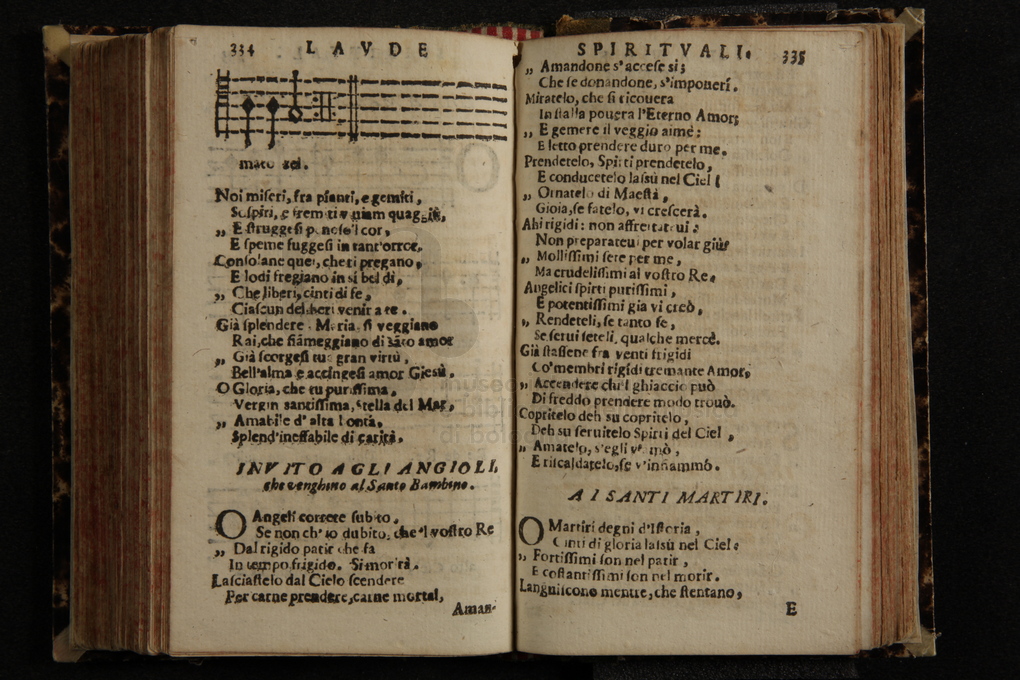 334 LAVDE
mato sei.
Noi miseri, fra pianti, e gemiti,
Sospiri, e fremiti v niam quaggiù,
„ E struggesi penoso'l cor,
E speme fuggesi in tant'orror.
Consolane quei, che ti pregano,
E lodi fregiano in si bel di,
„ Che liberi, cinti di fe,
Ciascun deliberi venir a te.
Già splendere, Maria, si veggiano
Rai, che fiãmeggiano di sãto amor
„ Già scorgesi tua gran virtù,
Bell'alma e accingesi amor Giesù.
O Gloria, che tu purissima,
Vergin santissima, stella del Mar,
„ Amabile d'alta bontà,
Splend'ineffabile di carità.
INVITO AGLI ANGIOLI,
che venghino al Santo Bambino.
O Angeli correte subito,
Se non ch'io dubito, che'l vostro Re
„ Dal rigido patir che fa
In tempo frigido. Si morirà.
Lasciastelo dal Cielo scendere
Per carne prendere, carne mortal,
Aman-
SPIRITVALI. 335
„ Amandone s'accese si;
Che se donandone, s'impouerí.
Miratelo, che si ricouera
In stalla pouera l'Eterno Amor;
„ E gemere il veggio aimè:
E letto prendere duro per me.
Prendetelo, Spirti prendetelo,
E conducetelo lassù nel Ciel!
„ Ornatelo di Maestà,
Gioia, se fatelo, vi crescerà.
Ahi rigidi: non affrettateui:
Non preparateui per volar giù?
„ Mollissimi sete per me,
Ma crudelissimi al vostro Re.
Angelici spirti purissimi,
E potentissimi gia vi creò,
„ Rendeteli, se tanto fe,
Se serui seteli, qualche mercè.
Già stassene fra venti frigidi
Co'membri rigidi tremante Amor,
„ Accendere chi'l ghiaccio può
Di freddo prendere modo trouò.
Copritelo deh su copritelo,
Deh su seruitelo Spirti del Ciel,
„ Amatelo, s'egli v'amò,
E riscaldatelo, se v'infiammò.
A I SANTI MARTIRI.
O Martiri degni d'Istoria,
Cinti di gloria lassù nel Ciel:
„ Fortissimi son nel patir,
E costantissimi son nel morir.
Languiscono mentre, che stentano,
E